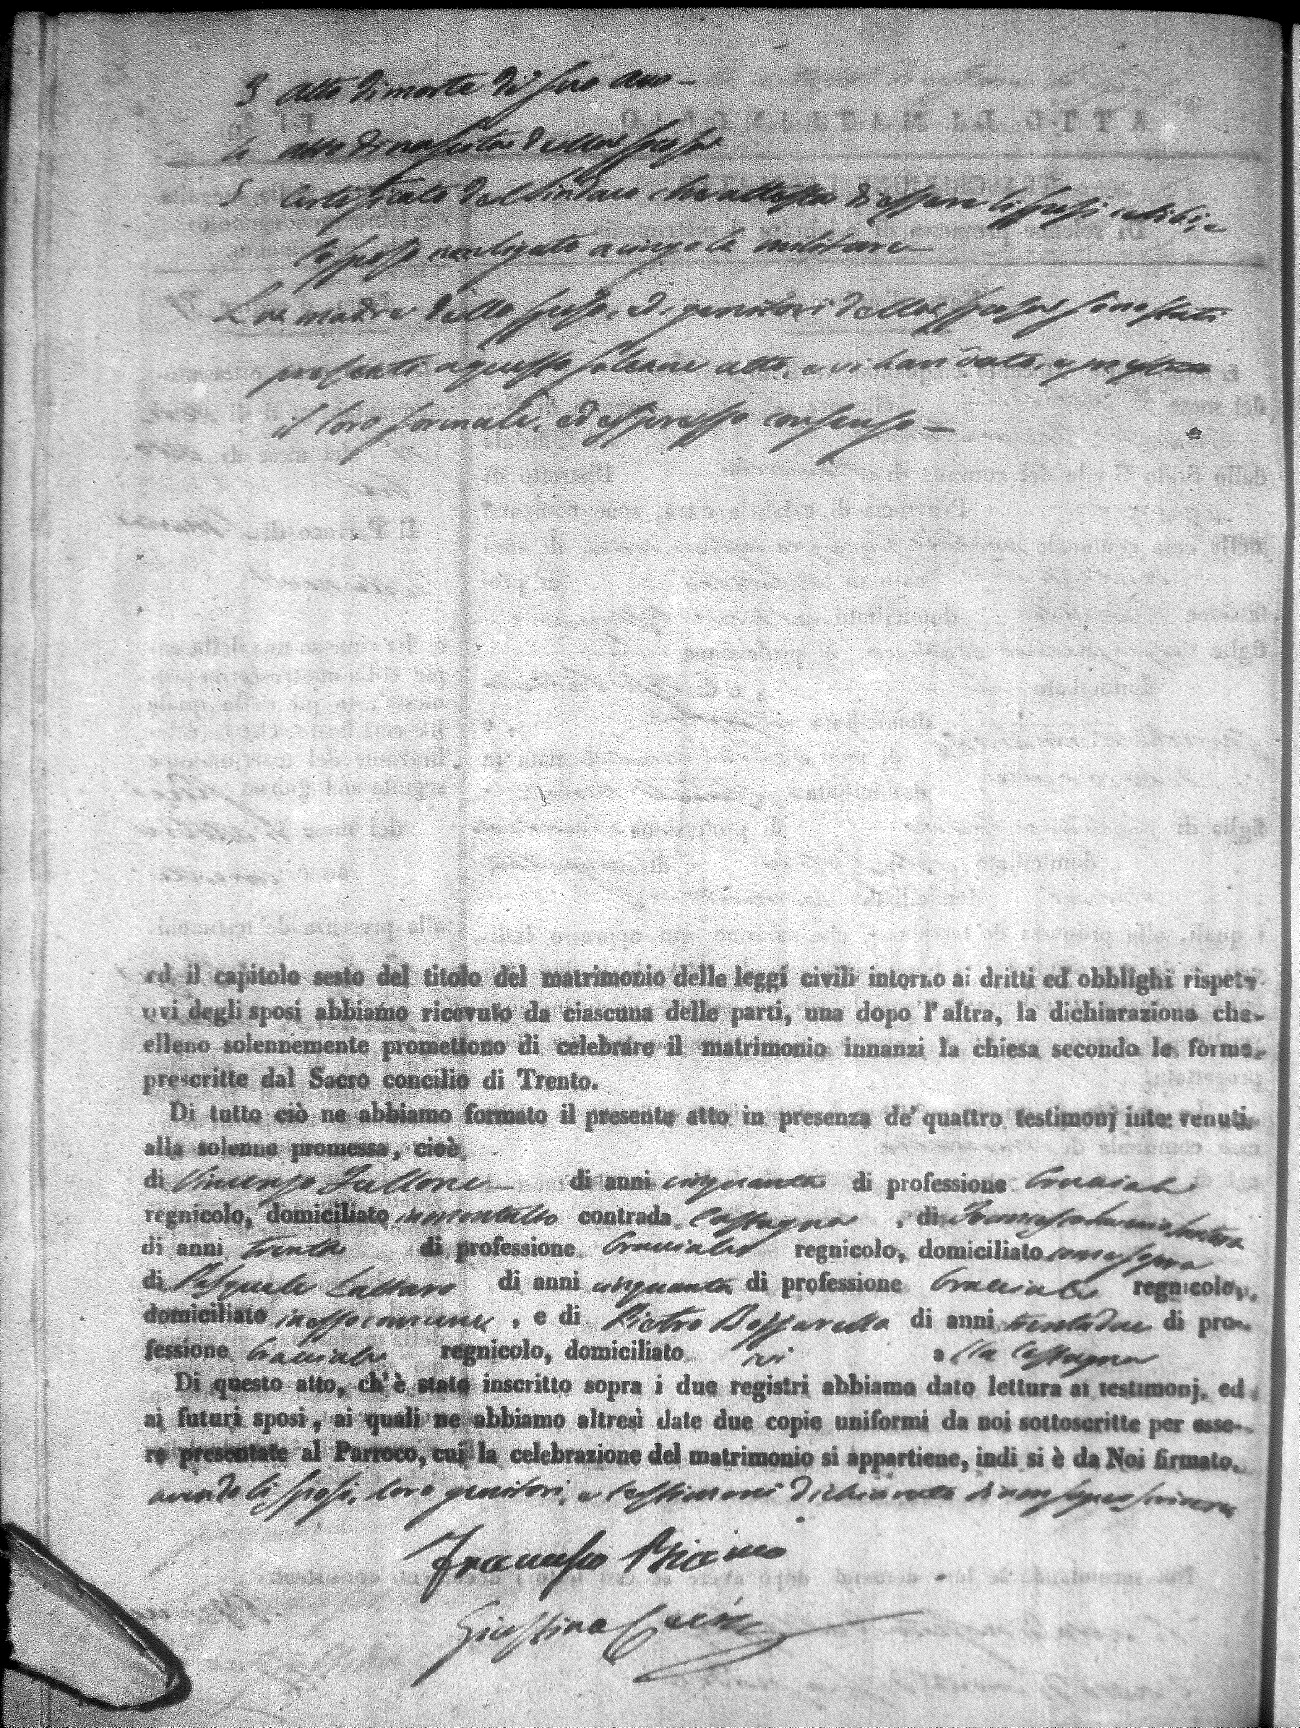 3 Atto di morte di suo avo –
4 atto di nascita della sposa
5 Certificato del Sindaco che attesta di essere li sposi celibi, e
lo sposo non legato a vincolo militare
La madre dello sposo, ed i genitori della sposa sono stati
presenti a questo solenne atto, e vi han dato, e prestato
il loro formale, ed espresso consenso –
ed il capitolo sesto del titolo del matrimonio delle leggi civili intorno ai dritti ed obblighi rispet-
vi degli sposi abbiamo ricevuto da ciascuna delle parti, una dopo l'altra, la dichiarazione che
elleno solennemente promettono di celebrare il matrimonio innanzi la chiesa secondo le forme
prescritte dal Sacro concilio di Trento.
Di tutto ciò ne abbiamo formato il presente atto in presenza de' quattro testimonj intervenuti
alla solenne promessa, cioè
di Vincenzo Fallone di anni cinquanta di professione bracciale
regnicolo, domiciliato contrada Castagna, di Francesco
di anni trenta di professione bracciale regnicolo, domiciliato come sopra
di Pasquale di anni cinquanta di professione bracciale regnicolo,
domiciliato in esso comune, e di Pietro anni trentadue di pro-
fessione bracciale regnicolo, domiciliato ivi a lla Castagna
Di questo atto, ch'è stato inscritto sopra i due registri abbiamo dato lettura ai testimonj, ed
ai futuri sposi, ai quali ne abbiamo altresì date due copie uniformi da noi sottoscritte per esse-
re presentate al Parroco, cui la celebrazione del matrimonio si appartiene, indi si è da Noi firmato.
avendo li sposi, loro genitori, e testimoni dichiarato di non sapere scrivere
Francesco
Giustino